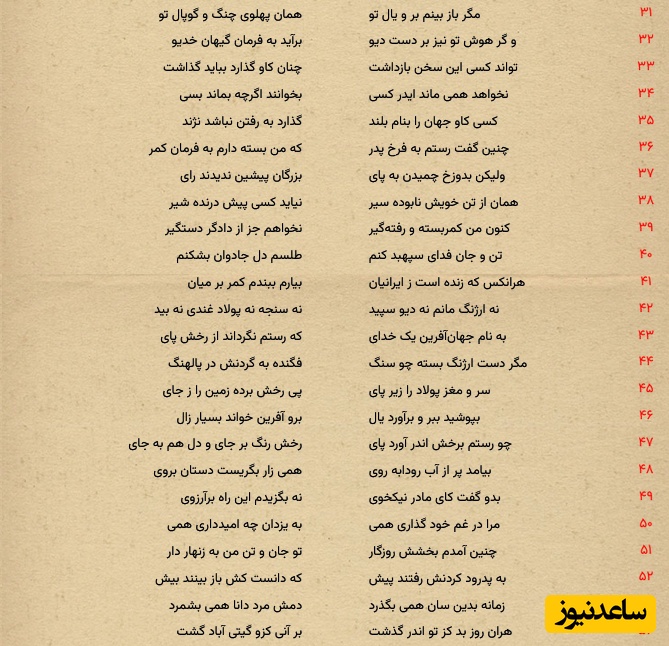 ۳۱ مگر باز بینم بر و یال تو همان پهلوی چنگ و گوپال تو
۳۲ و گر هوش تو نیز بر دست دیو برآید به فرمان گیهان خدیو
۳۳ تواند کسی این سخن بازداشت چنان کاو گذارد بباید گذاشت
۳۴ نخواهد همی ماند ایدر کسی بخوانند اگرچه بماند بسی
۳۵ کسی کاو جهان را بنام بلند گذارد به رفتن نباشد نژند
۳۶ چنین گفت رستم به فرخ پدر که من بسته دارم به فرمان کمر
۳۷ ولیکن بدوزخ چمیدن به پای بزرگان پیشین ندیدند رای
۳۸ همان از تن خویش نابوده سیر نیاید کسی پیش درنده شیر
۳۹ کنون من کمربسته و رفته‌گیر نخواهم جز از دادگر دستگیر
۴۰ تن و جان فدای سپهبد کنم طلسم دل جادوان بشکنم
۴۱ هرانکس که زنده است ز ایرانیان بیارم ببندم کمر بر میان
۴۲ نه ارژنگ مانم نه دیو سپید نه سنجه نه پولاد غندی نه بید
۴۳ به نام جهان‌آفرین یک خدای که رستم نگرداند از رخش پای
۴۴ مگر دست ارژنگ بسته چو سنگ فگنده به گردنش در پالهنگ
۴۵ سر و مغز پولاد را زیر پای پی رخش برده زمین را ز جای
۴۶ بپوشید ببر و برآورد یال برو آفرین خواند بسیار زال
۴۷ چو رستم برخش اندر آورد پای رخش رنگ بر جای و دل هم به جای
۴۸ بیامد پر از آب رودابه روی همی زار بگریست دستان بروی
۴۹ بدو گفت کای مادر نیکخوی نه بگزیدم این راه برآرزوی
۵۰ مرا در غم خود گذاری همی به یزدان چه امیدداری همی
۵۱ چنین آمدم بخشش روزگار تو جان و تن من به زنهار دار
۵۲ به پدرود کردنش رفتند پیش که دانست کش باز بینند بیش
زمانه بدین سان همی بگذرد دمش مرد دانا همی بشمرد
هران روز بد کز تو اندر گذشت بر آنی کزو گیتی آباد گشت
ساعدنیوز